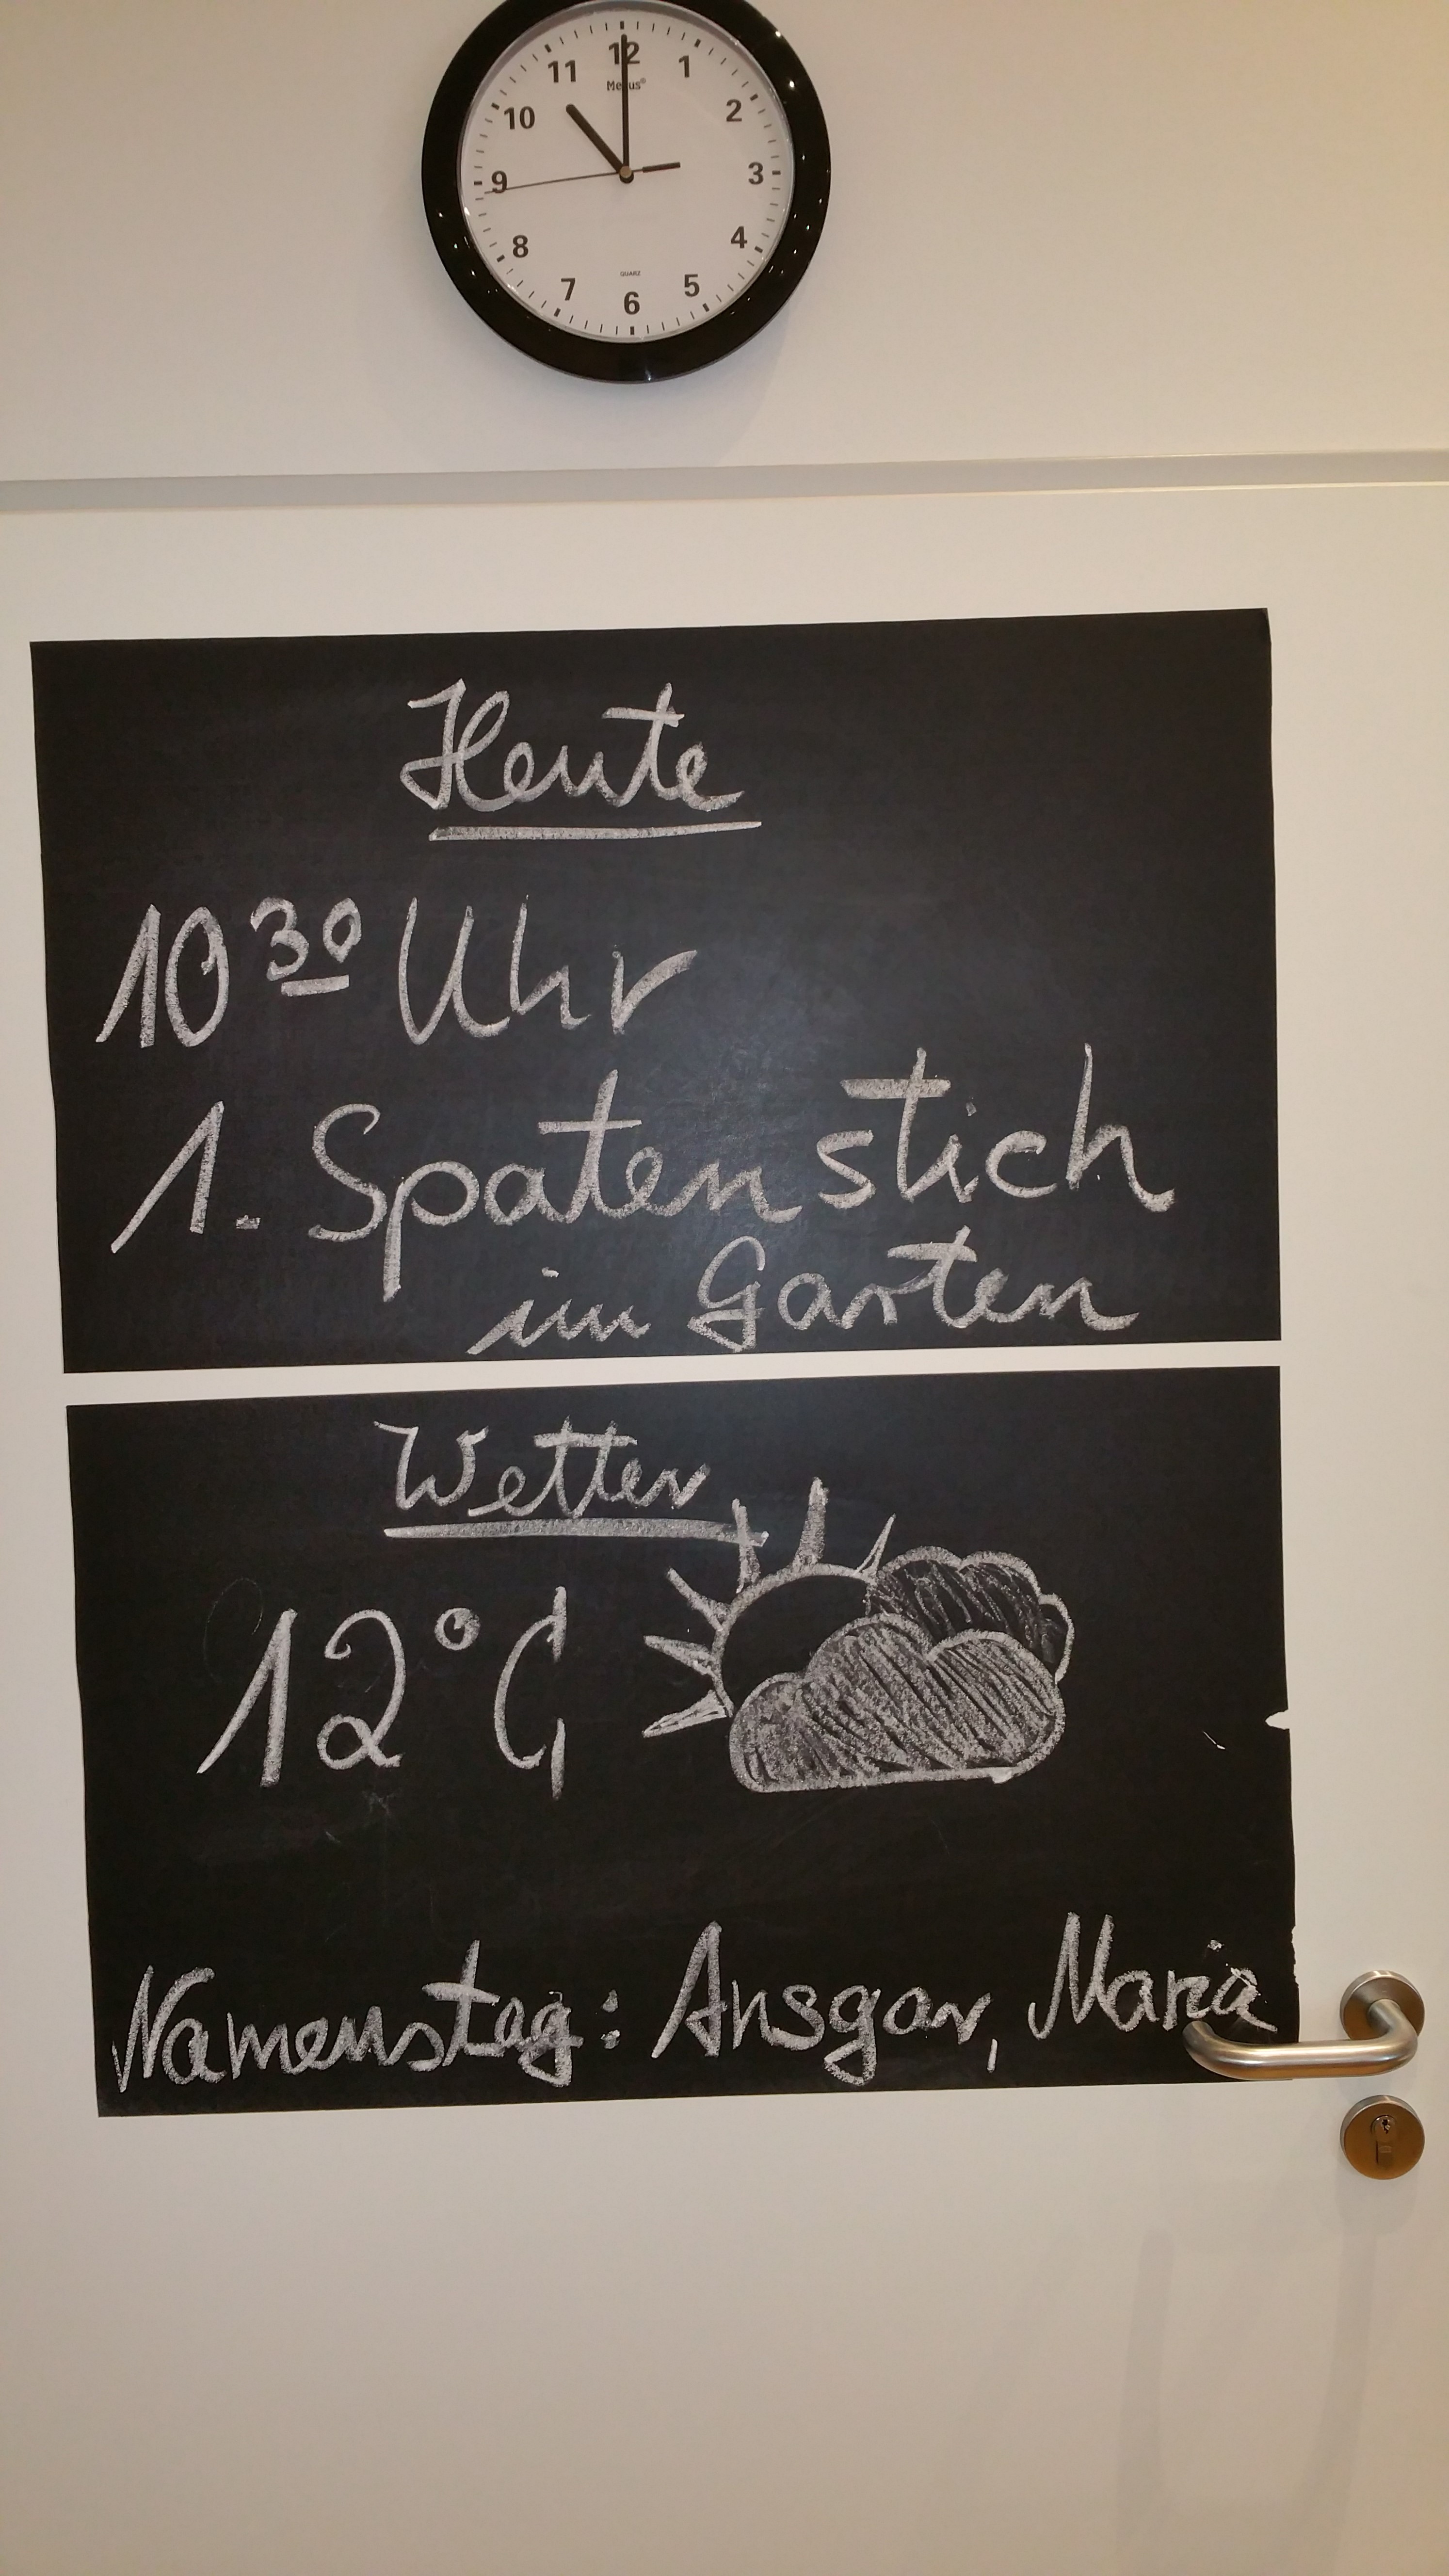 12
1
2
3
4
5
6
7
8
9
10
11
QUARZ
Heute
10³⁰ Uhr
1. Spatenstich
im Garten
Wetter
12°C
Namenstag: Ansgar, Maria